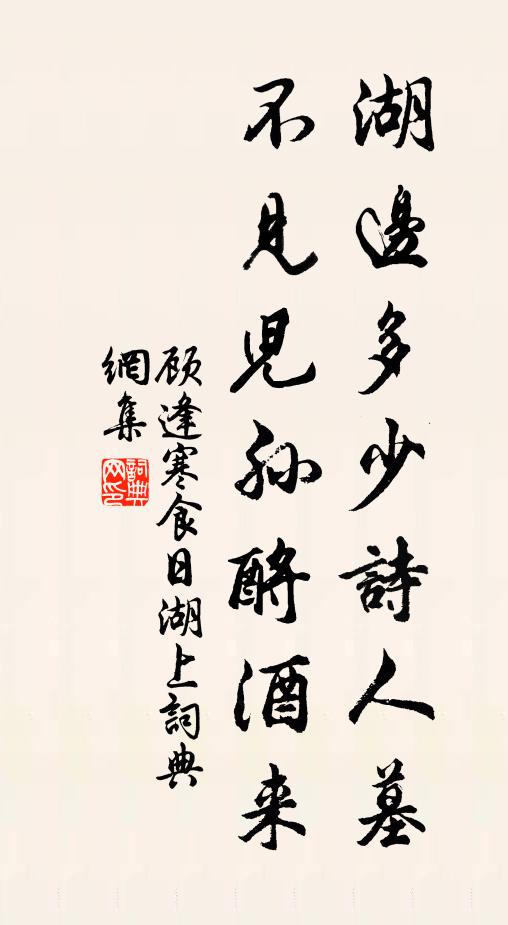 湖邊多少詩人墓
不見児孫酹酒来
顾逢寒食日湖上詞典
網集
詞典
网印